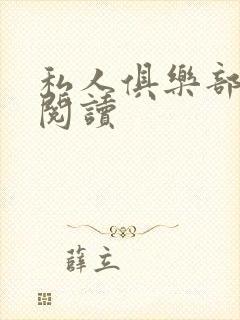 私人俱樂部
閱讀
薛立